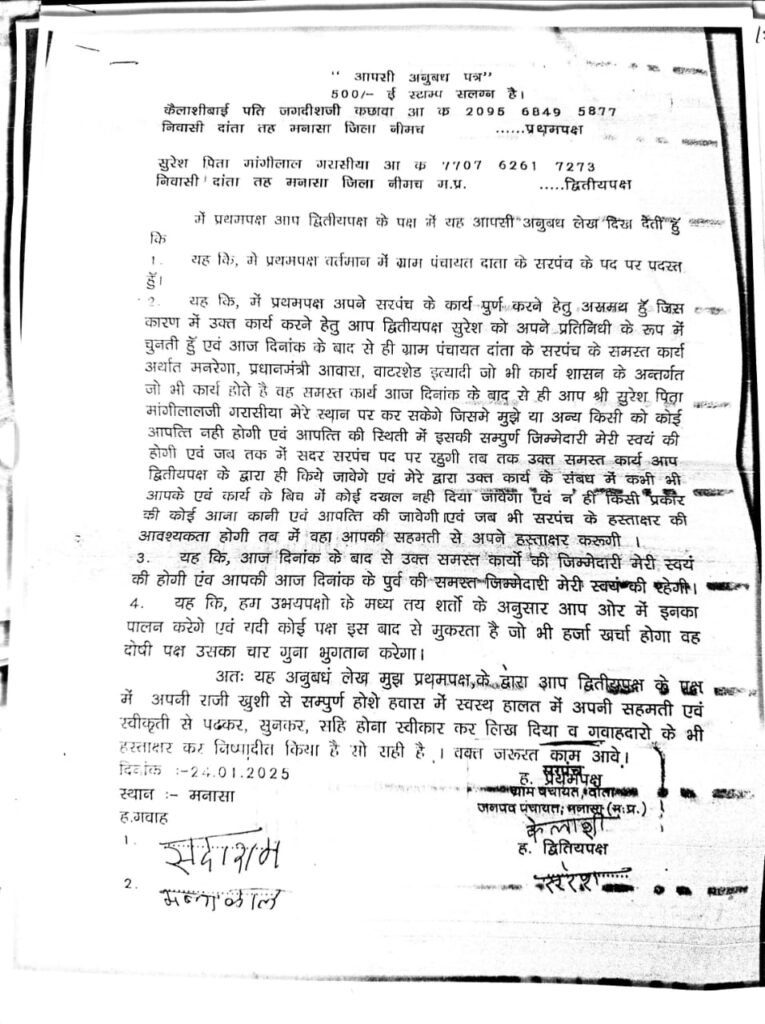 " आपसी अनुबध पत्र"
500/- ई स्टाम्प सलग्न है।
कैलाशीबाई पति जगदीशजी कछावा आ क 2095 6849 5877
निवासी दांता तह मनासा जिला नीमच ......प्रथमपक्ष
सुरेश पिता मांगीलाल गरासीया आ क 7707 6261 7273
निवासी दांता तह मनासा जिला नीमच म.प्र. .....द्वितीयपक्ष
में प्रथमपक्ष आप द्वितीयपक्ष के पक्ष में यह आपसी अनुबध लेख दिख देती हुँ
कि
1. यह कि, मे प्रथमपक्ष वर्तमान में ग्राम पंचायत दाता के सरपंच के पद पर पदस्त
हुँ।
2. यह कि, में प्रथमपक्ष अपने सरपंच के कार्य पुर्ण करने हेतु असमथ हुँ जिस
कारण में उक्त कार्य करने हेतु आप द्वितीयपक्ष सुरेश को अपने प्रतिनिधी के रूप में
चुनती हुँ एवं आज दिनांक के बाद से ही ग्राम पंचायत दांता के सरपंच के समस्त कार्य
अर्थात मनरेगा, प्रधानमंत्री आवास, वाटरशेड इत्यादी जो भी कार्य शासन के अन्तर्गत
जो भी कार्य होते है वह समस्त कार्य आज दिनांक के बाद से ही आप श्री सुरेश पिता
मांगीलालजी गरासीया मेरे स्थान पर कर सकेगे जिसमे मुझे या अन्य किसी को कोई
आपत्ति नही होगी एवं आपत्ति की स्थिती में इसकी सम्पुर्ण जिम्मेदारी मेरी स्वयं की
होगी एवं जब तक में सदर सरपंच पद पर रहुगी तब तक उक्त समस्त कार्य आप
द्वितीयपक्ष के द्वारा ही किये जावेगे एवं मेरे द्वारा उक्त कार्य के संबध में कभी भी
आपके एवं कार्य के बिच में कोई दखल नही दिया जावेगा एवं न ही किसी प्रकार
की कोई आना कानी एवं आपत्ति की जावेगी।एवं जब भी सरपंच के हस्ताक्षर की
आवश्यकता होगी तब में वहा आपकी सहमती से अपने हस्ताक्षर करूगी ।
3. यह कि, आज दिनांक के बाद से उक्त समस्त कार्यो की जिम्मेदारी मेरी स्वयं
की होगी एंव आपकी आज दिनांक के पुर्व की समस्त जिम्मेदारी मेरी स्वयं की रहेगी।
4. यह कि, हम उभयपक्षो के मध्य तय शर्तो के अनुसार आप ओर में इनका
पालन करेगे एवं यदी कोई पक्ष इस बाद से मुकरता है जो भी हर्जा खर्चा होगा वह
दोषी पक्ष उसका चार गुना भुगतान करेगा।
अतः यह अनुबधं लेख मुझ प्रथमपक्ष,के द्वारा आप द्वितीयपक्ष के पक्ष
में अपनी राजी खुशी से सम्पुर्ण होशे हवास में स्वस्थ हालत में अपनी सहमती एवं
स्वीकृती से पढकर, सुनकर, सहि होना स्वीकार कर लिख दिया व गवाहदारो के भी
हस्ताक्षर कर निष्पादीत किया है सो सही है । वक्त जरूरत काम आवे।
दिनांक :-24.01.2025
सरपंच
ह. प्रथमपक्ष
स्थान :- मनासा
ग्राम पंचायत, दाता
जनपद पंचायत, मनासा (म.प्र.)
ह.गवाह
केलाशी
ह. द्वितियपक्ष
1. सदाराम
सुरेश
2.